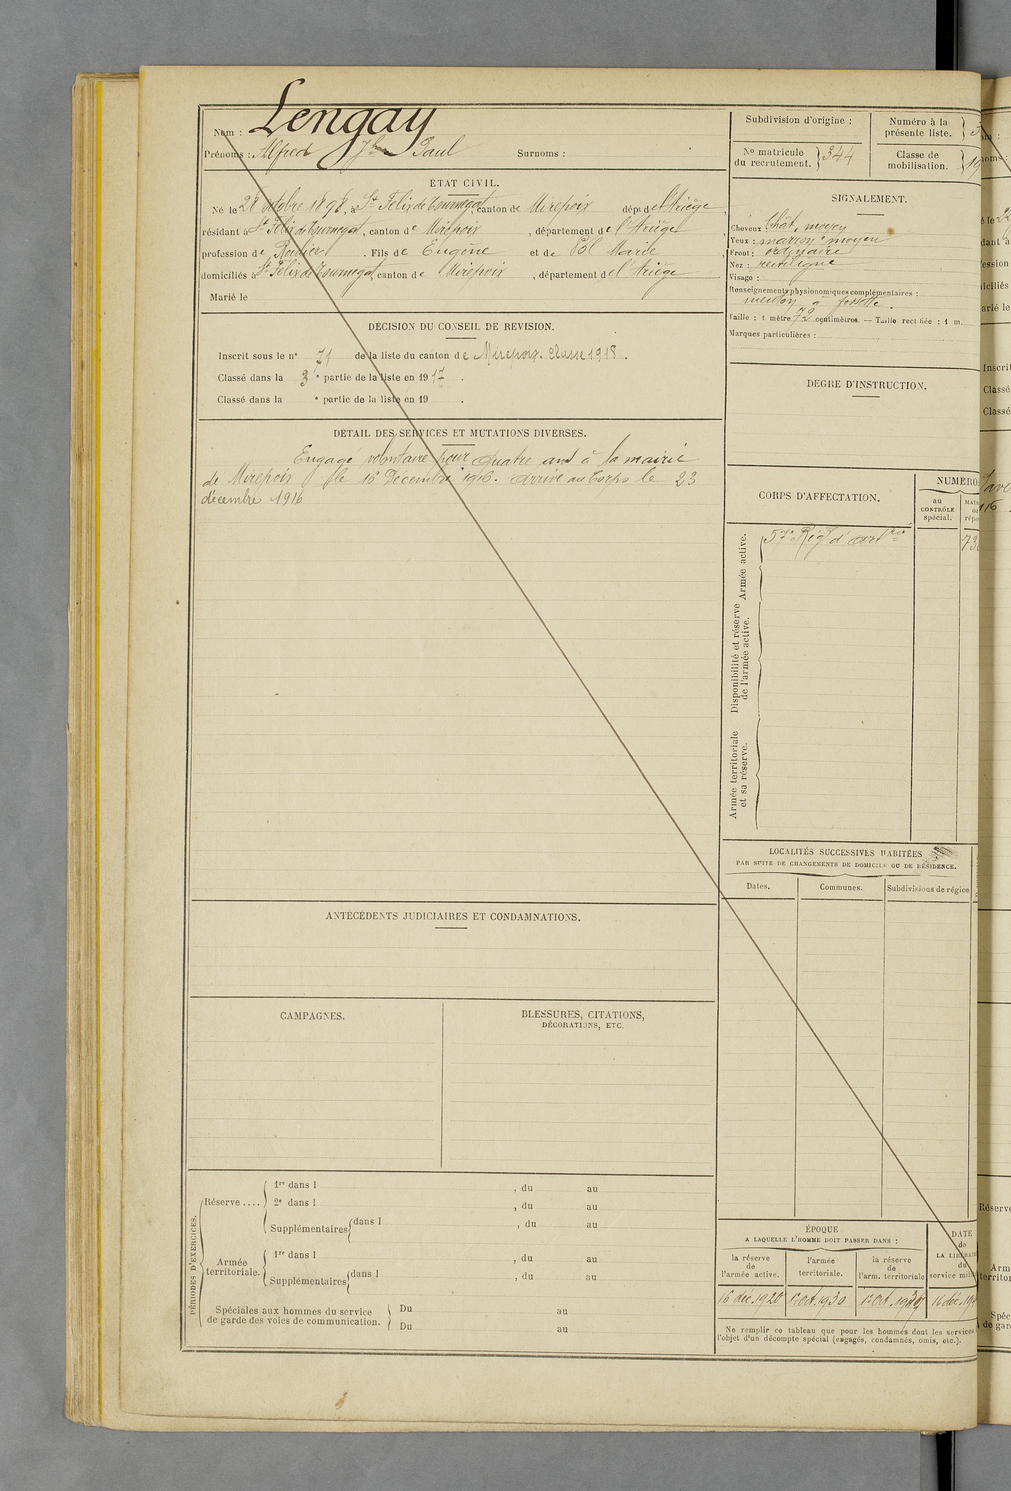 Nom : Lengay
Prénoms : Alfred Jh Paul Surnoms :
ÉTAT CIVIL.
Né le 28 octobre 1898, à St Félix de Tournegat, canton de Mirepoix dépt de l'Ariège
résidant à St Félix de Tournegat, canton de Mirepoix, département de l'Ariège
profession de Routier. Fils de Eugène et de Bl Marie
domiciliés à St Félix de Tournegat, canton de Mirepoix, département de l'Ariège
Marié le
DÉCISION DU CONSEIL DE REVISION.
Inscrit sous le no 71 de la liste du canton de Mirepoix. Classe 1918.
Classé dans la 3e partie de la liste en 1917.
Classé dans la e partie de la liste en 19 .
DÉTAIL DES SERVICES ET MUTATIONS DIVERSES.
Engagé volontaire pour quatre ans à la mairie
de Mirepoix le 16 Décembre 1916. Arrivé au Corps le 23
décembre 1916
ANTÉCÉDENTS JUDICIAIRES ET CONDAMNATIONS.
CAMPAGNES.
BLESSURES, CITATIONS,
DÉCORATIONS, ETC.
PÉRIODES D'EXERCICES.
Réserve ....
1re dans l , du au
2e dans l , du au
Supplémentaires dans l , du au
Armée
territoriale.
1re dans l , du au
Supplémentaires dans l , du au
Spéciales aux hommes du service
de garde des voies de communication.
Du au
Du au
Subdivision d'origine :
Numéro à la
présente liste.
No matricule
du recrutement. 344
Classe de
mobilisation. 19
SIGNALEMENT.
Cheveux Chât. moyen
Yeux : marron moyen
Front : ordinaire
Nez : rectiligne
Visage :
Renseignements physionomiques complémentaires :
menton à fossette.
Taille : 1 mètre 72 centimètres. — Taille rectifiée : 1 m.
Marques particulières :
DEGRÉ D'INSTRUCTION.
CORPS D'AFFECTATION.
NUMÉRO
au
CONTRÔLE
spécial.
Armée active.
57e Régt d'Artrie
73
Disponibilité et réserve
de l'armée active.
Armée territoriale
et sa réserve.
LOCALITÉS SUCCESSIVES HABITÉES
PAR SUITE DE CHANGEMENTS DE DOMICILE OU DE RÉSIDENCE.
Dates. Communes. Subdivisions de région
ÉPOQUE
A LAQUELLE L'HOMME DOIT PASSER DANS :
la réserve
de
l'armée active.
l'armée
territoriale.
la réserve
de
l'arm. territoriale
DATE
de
LA LIBÉRA
du
service mili
16 déc. 1920
1 oct. 1930
16 déc. 19
Ne remplir ce tableau que pour les hommes dont les services
l'objet d'un décompte spécial (engagés, condamnés, omis, etc.).